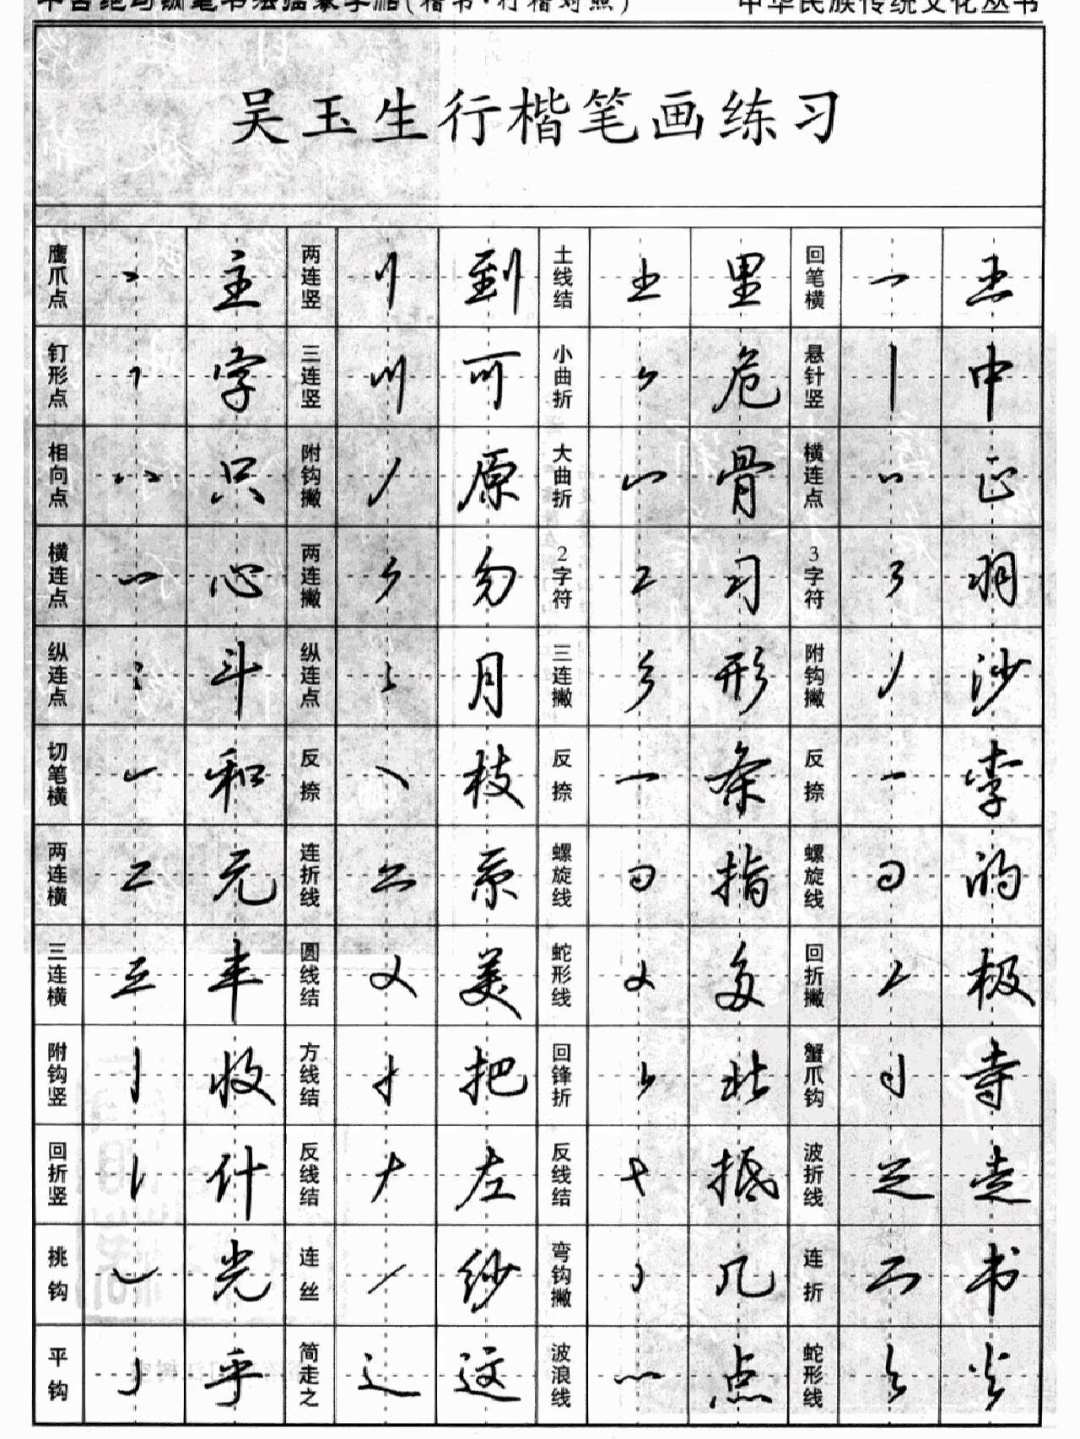 (楷书·行楷对照)
中华民族传统文化丛书
吴玉生行楷笔画练习
鹰爪点 主 两连竖 到 土线结 里 回笔横
钉形点 字 三连竖 可 小曲折 危 悬针竖 中
相向点 只 附钩撇 原 大曲折 骨 横连点 正
横连点 心 两连撇 勿 2字符 习 3字符 羽
纵连点 斗 纵连点 月 三连撇 形 附钩撇 沙
切笔横 和 反捺 枝 反捺 条 反捺 李
两连横 元 连折线 系 螺旋线 指 螺旋线 的
三连横 丰 圆线结 美 蛇形线 多 回折撇 极
附钩竖 收 方线结 把 回锋折 北 蟹爪钩 寺
回折竖 什 反线结 左 反线结 抵 波折线 走
挑钩 光 连丝 纱 弯钩撇 几 连折 书
平钩 乎 简走之 这 波浪线 点 蛇形线